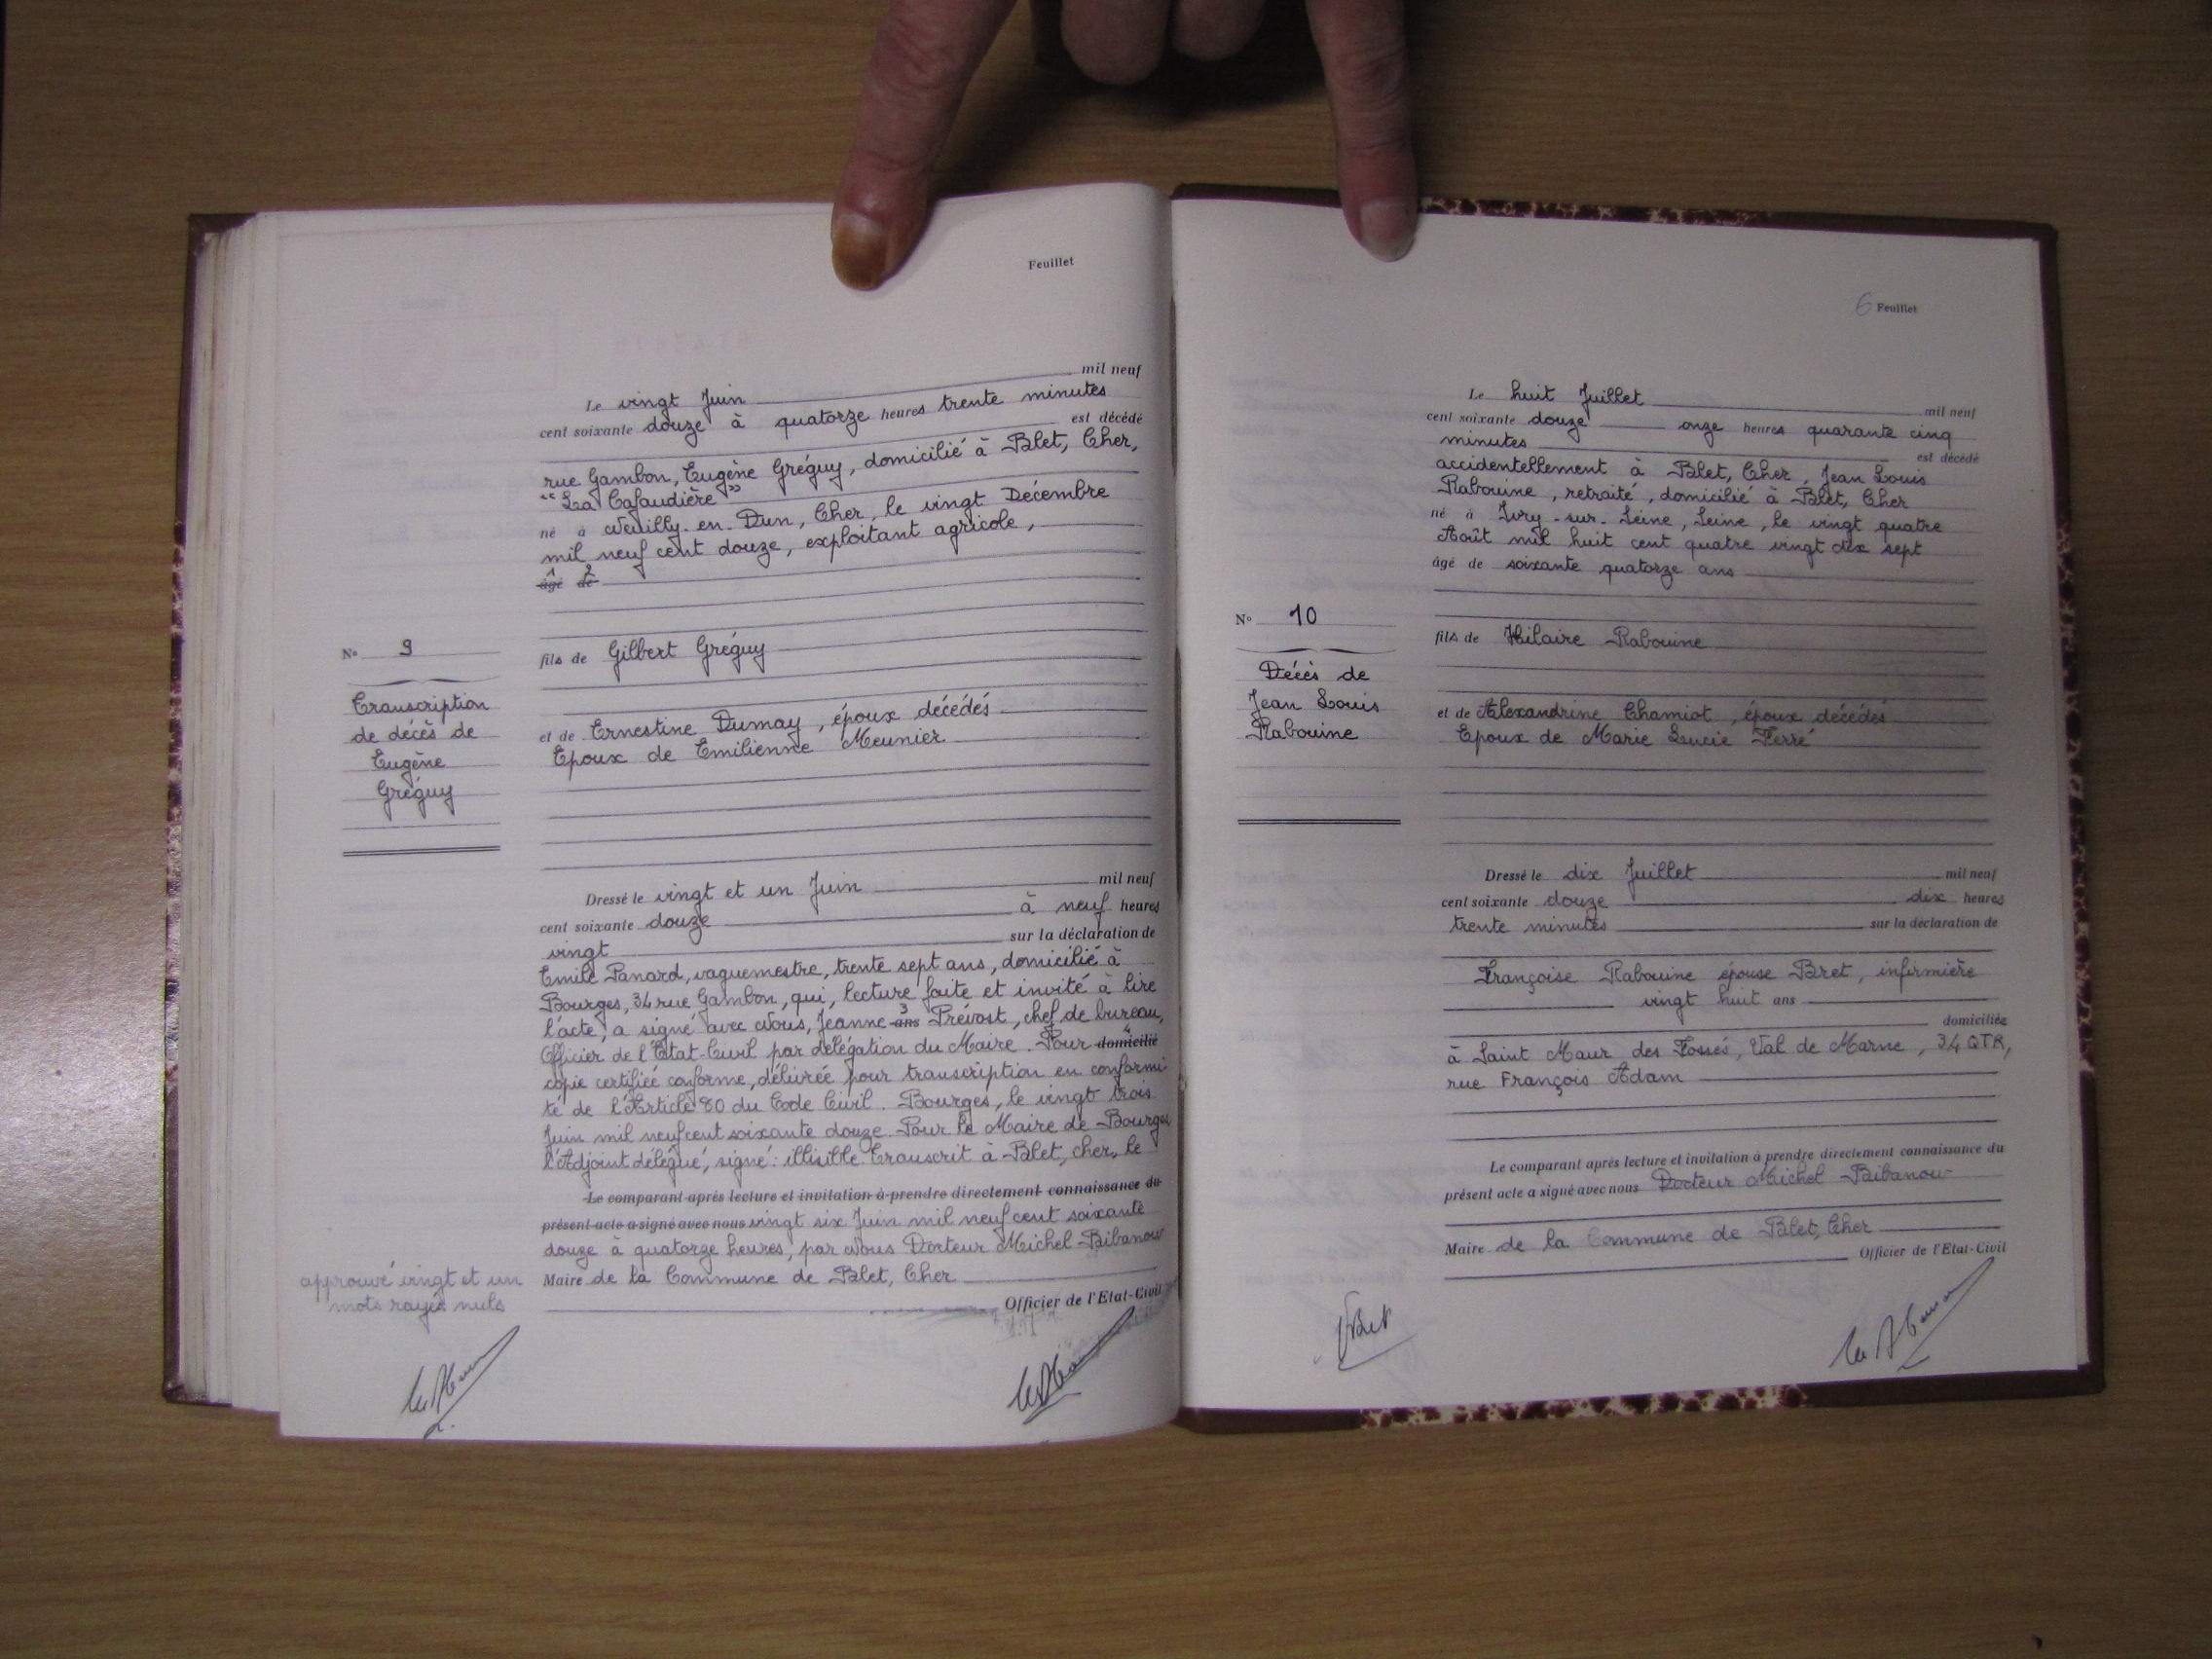 Feuillet
Le vingt Juin mil neuf
cent soixante douze à quatorze heures trente minutes
est décédé
rue Gambon, Eugène Gréguy, domicilié à Blet, Cher,
"La Cafaudière"
né à Neuilly-en-Dun, Cher, le vingt Décembre
mil neuf cent douze, exploitant agricole,
âgé de
N° 9
Transcription
de décès de
Eugène
Gréguy
fils de Gilbert Gréguy
et de Ernestine Dumay, époux décédés
Epoux de Emilienne Meunier
Dressé le vingt et un Juin mil neuf
cent soixante douze à neuf heures
vingt sur la déclaration de
Emile Panard, vaguemestre, trente sept ans, domicilié à
Bourges, 34 rue Gambon, qui, lecture faite et invité à lire
l'acte, a signé avec Nous, Jeanne ans Prévost, chef de bureau,
Officier de l'Etat-Civil par délégation du Maire. Pour domicilié
copie certifiée conforme, délivrée pour transcription en conformi-
té de l'Article 80 du Code Civil. Bourges, le vingt trois
Juin mil neuf cent soixante douze. Pour le Maire de Bourges
l'Adjoint délégué, signé: illisible. Transcrit à Blet, cher, le
Le comparant après lecture et invitation à prendre directement connaissance du
présent acte a signé avec nous vingt six Juin mil neuf cent soixante
douze à quatorze heures, par Nous Docteur Michel Bibanow
Maire de la Commune de Blet, Cher
Officier de l'Etat-Civil
approuvé vingt et un
mots rayés nuls
6 Feuillet
Le huit Juillet mil neuf
cent soixante douze onze heures quarante cinq
minutes est décédé
accidentellement à Blet, Cher, Jean Louis
Rabouine, retraité, domicilié à Blet, Cher
né à Ivry-sur-Seine, Seine, le vingt quatre
Août mil huit cent quatre vingt dix sept
âgé de soixante quatorze ans
N° 10
Décès de
Jean Louis
Rabouine
fils de Hilaire Rabouine
et de Alexandrine Chamiot, époux décédés
Epoux de Marie Lucie Ferré
Dressé le dix Juillet mil neuf
cent soixante douze dix heures
trente minutes sur la déclaration de
Françoise Rabouine épouse Bret, infirmière
vingt huit ans
domiciliée
à Saint Maur des Fossés, Val de Marne, 34 QTR,
rue François Adam
Le comparant après lecture et invitation à prendre directement connaissance du
présent acte a signé avec nous Docteur Michel Bibanow
Maire de la Commune de Blet, Cher
Officier de l'Etat-Civil